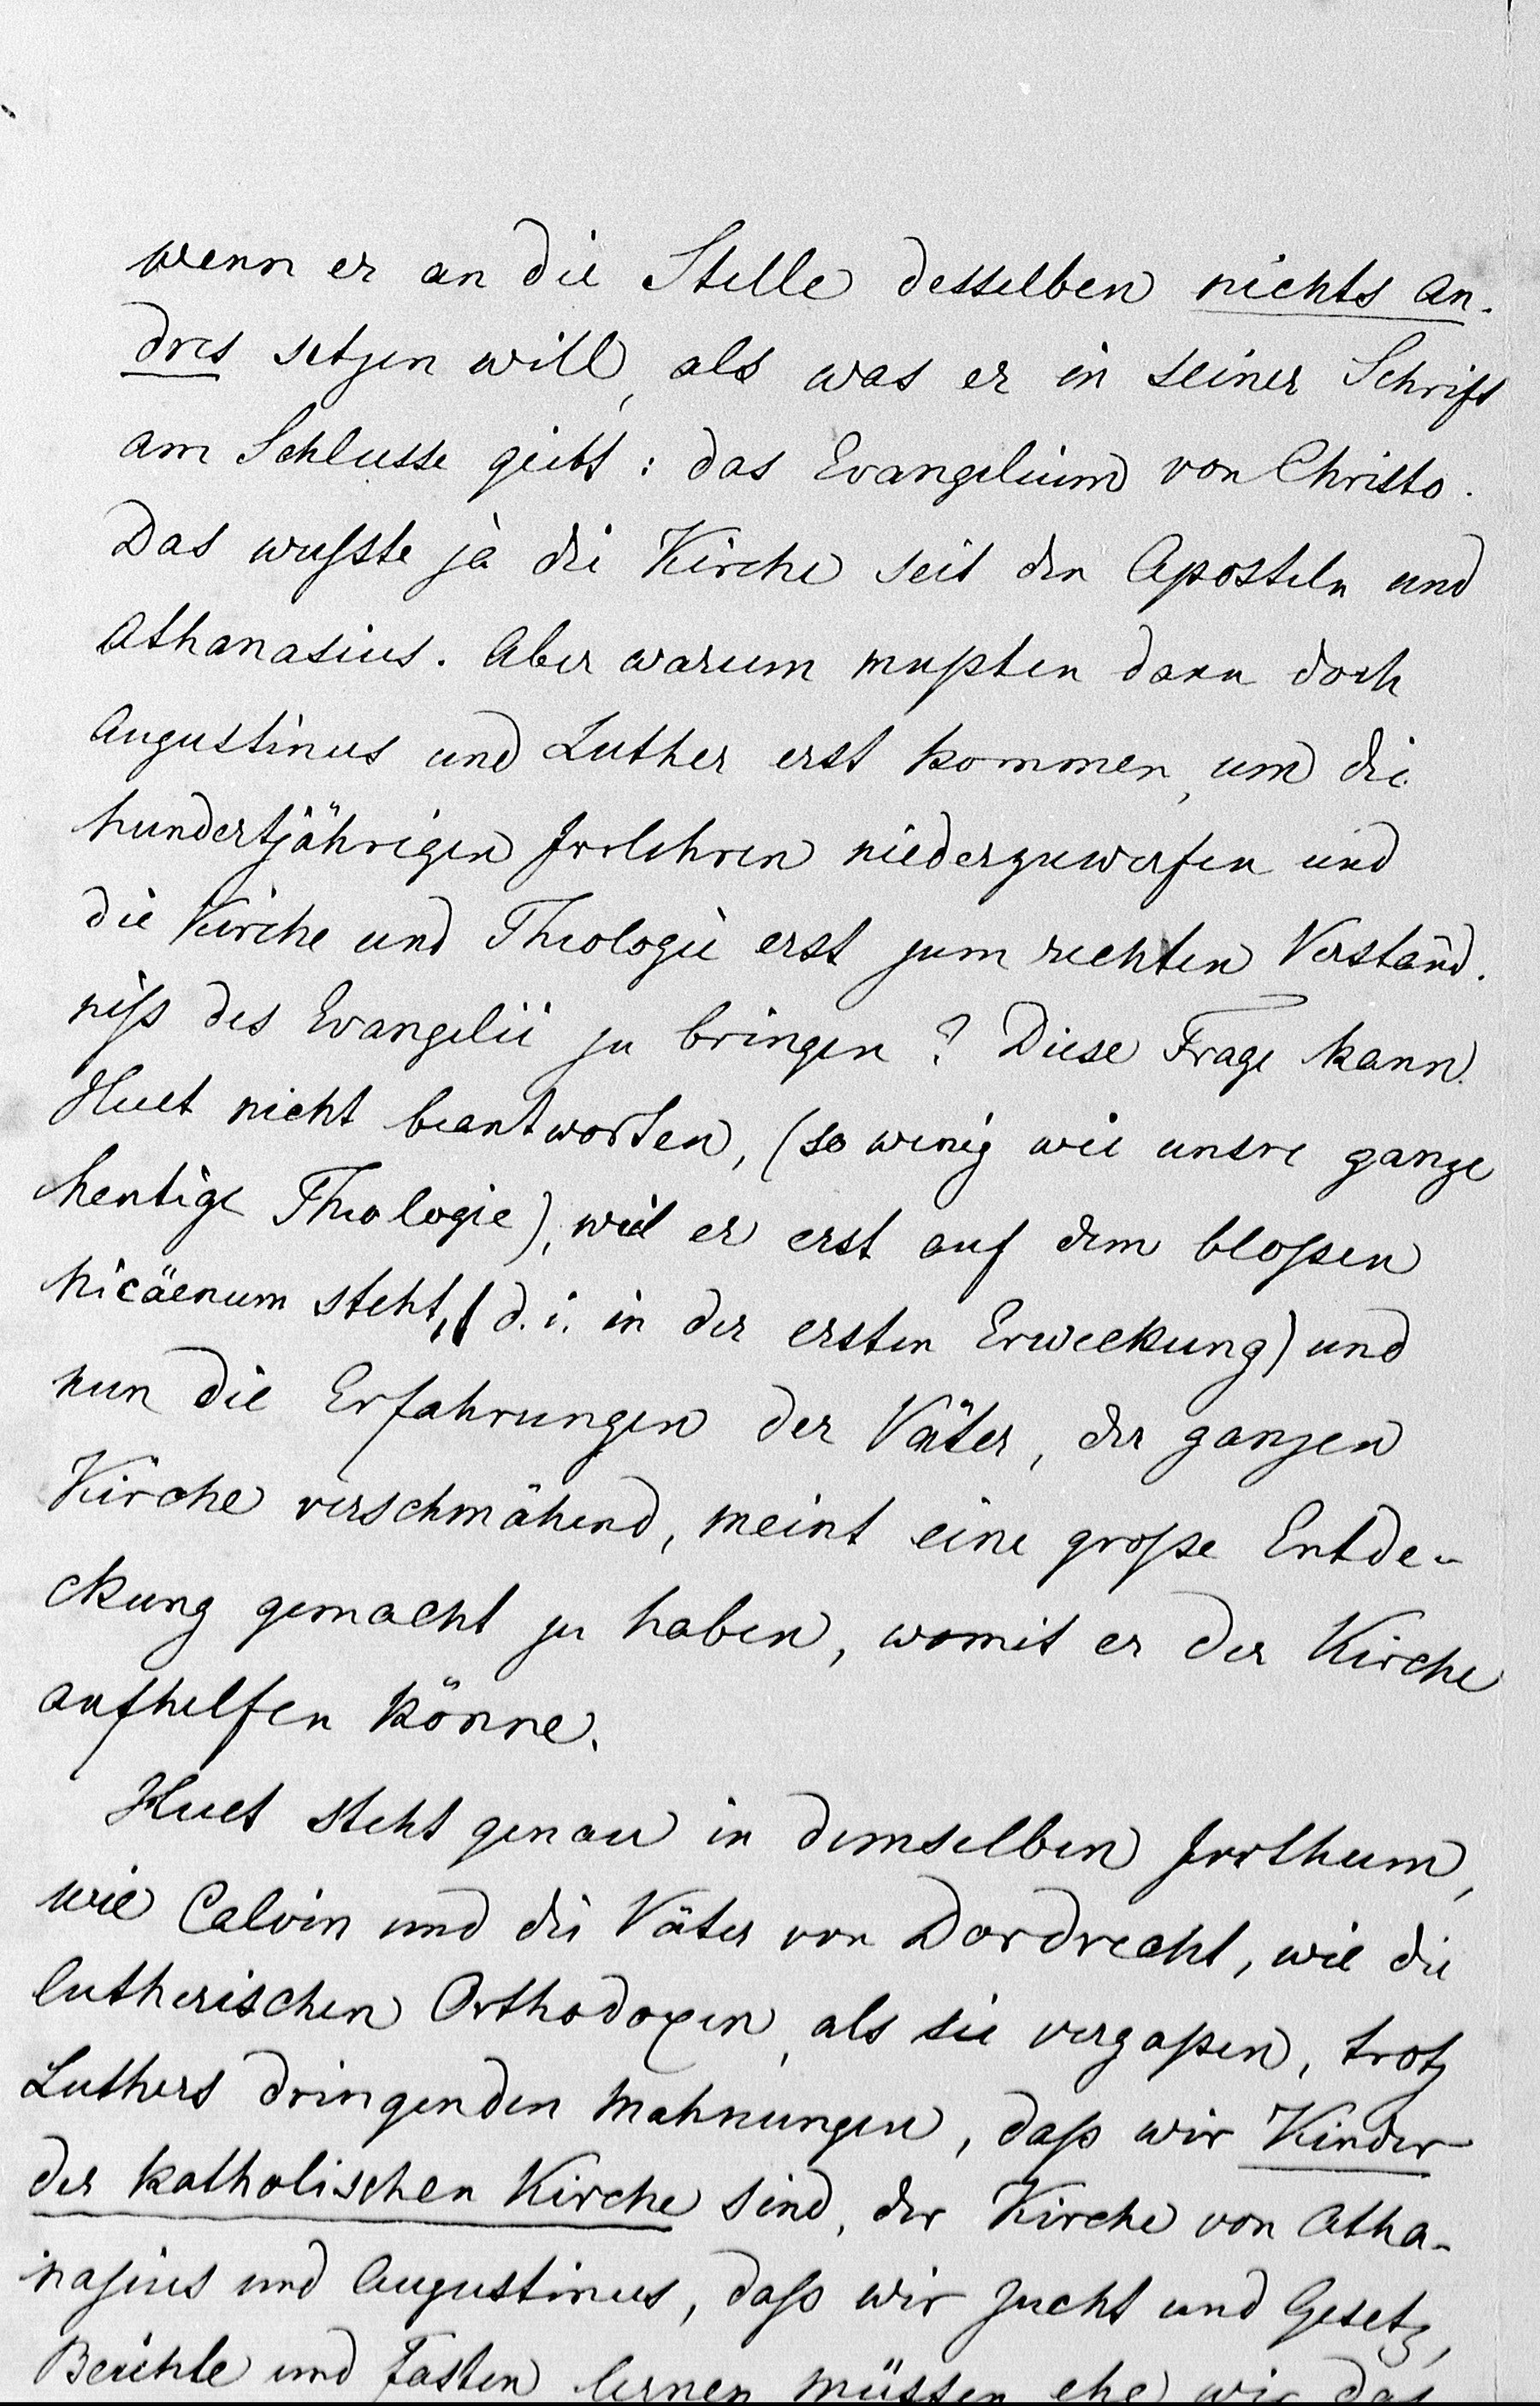 wenn er an die Stelle desselben nichts an-
dres setzen will, als was er in seiner Schrift
am Schlusse giebt: das Evangelium von Christo.
Das wußte ja die Kirche seit den Aposteln und
Athanasius. Aber warum mußten dann doch
Augustinus und Luther erst kommen, um die
hundertjährigen Irrlehren niederzuwerfen und
die Kirche und Theologie erst zum rechten Verständ-
niß des Evangelii zu bringen? Diese Frage kann
Huet nicht beantworten, (so wenig wie unsre ganze
heutige Theologie), weil er erst auf dem bloßen
Nicäenum steht, (d. i. in der ersten Erweckung) und
nun die Erfahrungen der Väter, der ganzen
Kirche verschmähend, meint eine große Entde-
ckung gemacht zu haben, womit er der Kirche
aufhelfen könne.
Huet steht genau in demselben Irrthum,
wie Calvin und die Väter von Dordrecht, wie die
lutherischen Orthodoxen, als sie vergaßen, trotz
Luthers dringenden Mahnungen, daß wir Kinder
der katholischen Kirche sind, der Kirche von Atha-
nasius und Augustinus, daß wir Zucht und Gesetz,
Beichte und Fasten lernen müssen ehe wir das